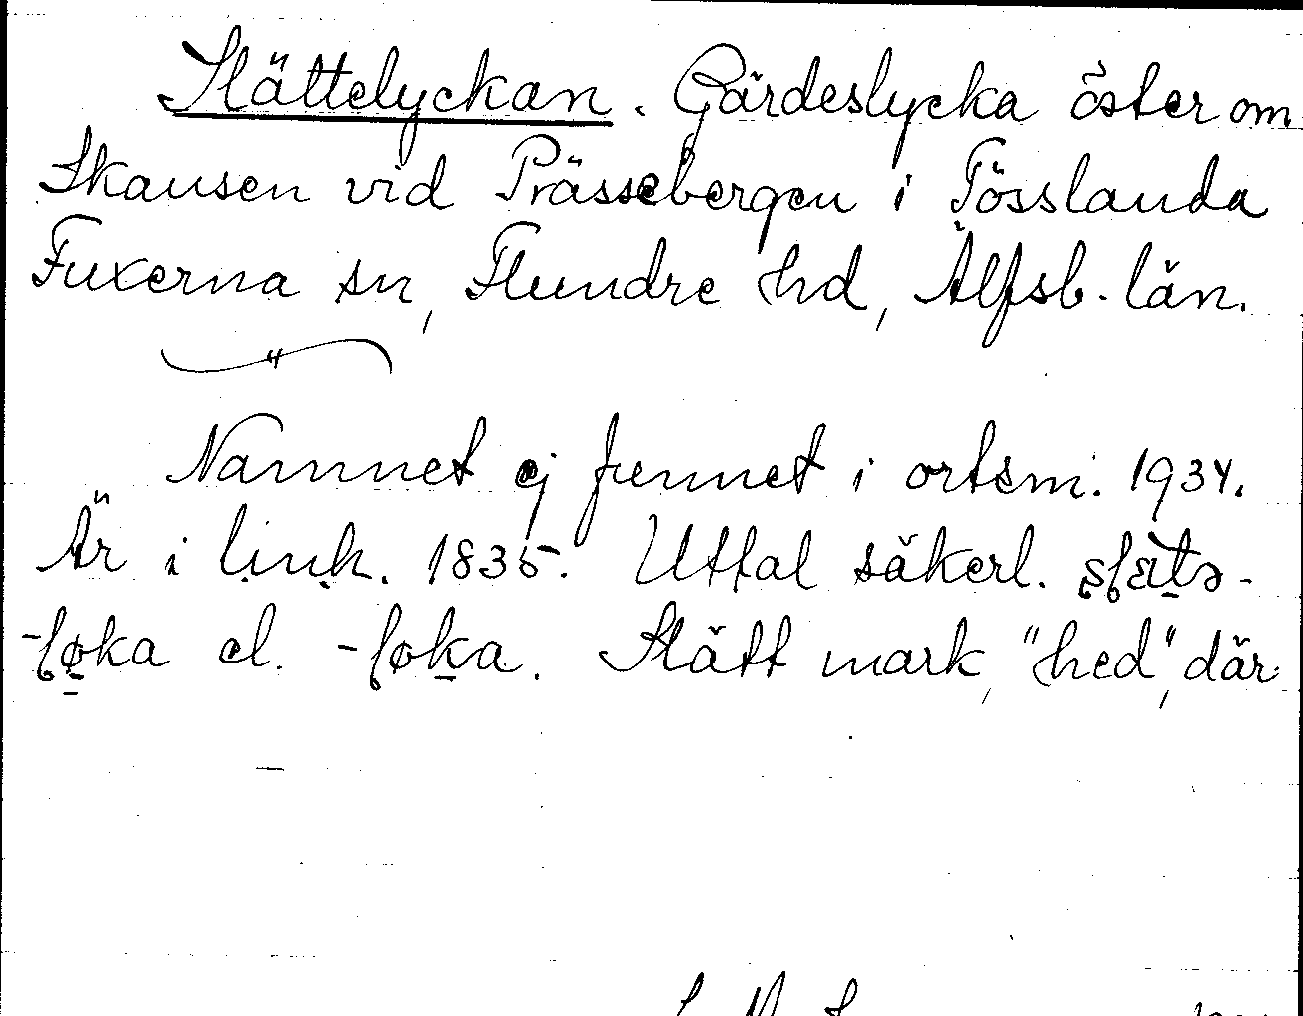 Slättelyckan. Gärdeslycka öster om
Skausen vid Prässebergen i Tösslanda
Fuxerna sn, Flundre hd, Älfsb. län.
Namnet ej funnet i ortsm. 1934.
Är i link. 1835. Uttal säkerl.
el. Slätt mark, "hed", där